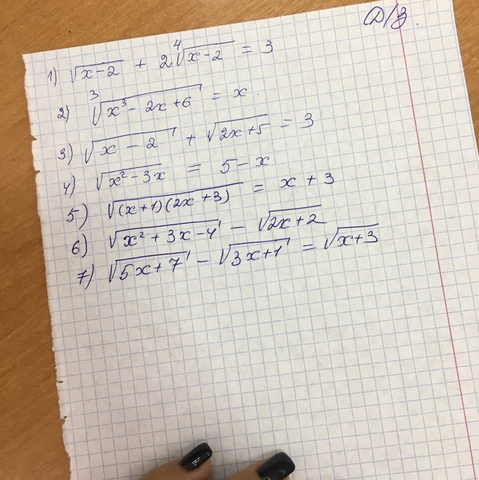 Д/з.
1) √(x-2) + 2⁴√(x-2) = 3
2) ³√(x³-2x+6) = x.
3) √(x-2) + √(2x+5) = 3
4) √(x²-3x) = 5-x
5) √((x+1)(2x+3)) = x+3
6) √(x²+3x-4) - √(2x+2)
7) √(5x+7) - √(3x+1) = √(x+3)